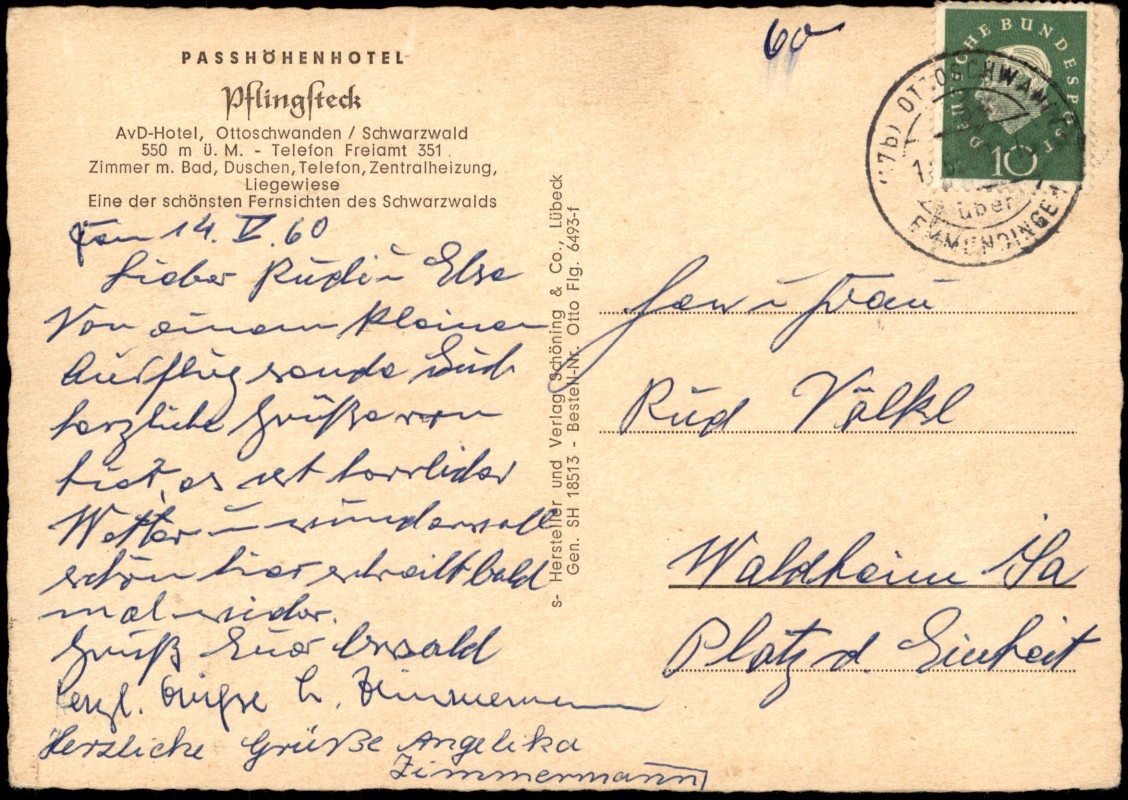 PASSHÖHENHOTEL
Pflingsteck
AvD-Hotel, Ottoschwanden / Schwarzwald
550 m ü. M. - Telefon Freiamt 351
Zimmer m. Bad, Duschen, Telefon, Zentralheizung,
Liegewiese
Eine der schönsten Fernsichten des Schwarzwalds
14. V. 60
Lieber Rudi u Else
Von einem kleinen
Ausflug sende Euch
herzliche Grüße von
hier, es ist herrlicher
Wetter u wundervoll
schön hier schreibt bald
mal wieder.
Gruß Euer Oswald
herzl. Grüße h. Zimmermann
Herzliche Grüße Angelika
Zimmermann
s- Hersteller und Verlag Schöning & Co., Lübeck
Gen. SH 18513 - Bestell-Nr. Otto Flg. 6493-f
60
DEUTSCHE BUNDESPOST
10
(17b) OTTOSCHWANDEN
über
EMMENDINGEN
Herr u Frau
Rud Völkl
Waldheim Sa
Platz d. Einheit